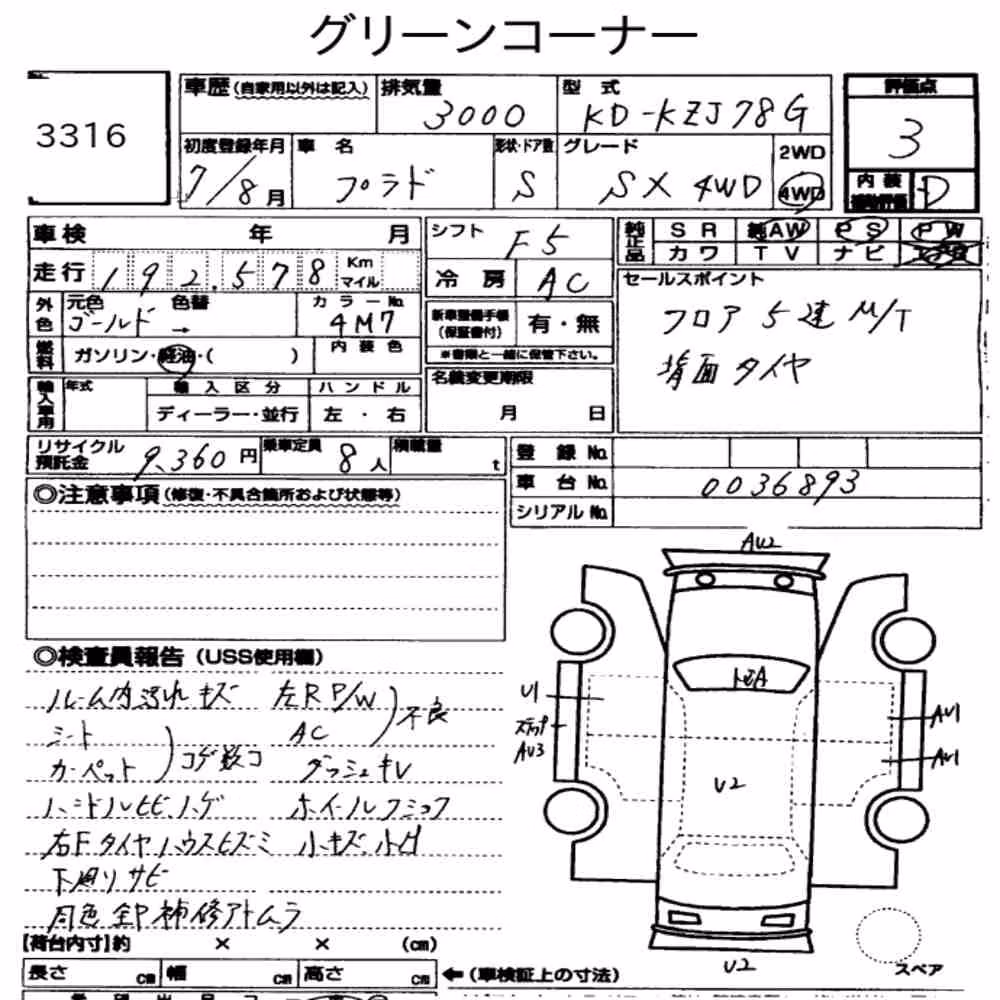 グリーンコーナー
3316
車歴 (自家用以外は記入)
排気量 3000
型式 KD-KZJ78G
評価点 3
初度登録年月 7/8月
車名 プラド
形状・ドア数 S
グレード SX 4WD
2WD
4WD
内装 補助評価 D
車検 年 月
シフト F5
純正品 SR 純AW PS PW
カワ TV ナビ
走行 192,578 Km マイル
冷房 AC
セールスポイント
フロア 5速 M/T
背面タイヤ
外色 元色 ゴールド 色替 → カラーNo. 4M7
新車整備手帳 (保証書付) 有・無
※書類と一緒に保管下さい。
燃料 ガソリン・軽油・( )
内装色
輸入車用 年式 輸入区分 ハンドル
ディーラー・並行 左・右
名義変更期限
月 日
リサイクル預託金 9,360円
乗車定員 8人
積載量 t
登録No.
車台No. 0036893
シリアルNo.
◎注意事項 (修復・不具合箇所および状態等)
◎検査員報告 (USS使用欄)
ルーム内汚れキズ 左R P/W
シート AC 不良
カーペット コゲ数コ ダッシュキレ
ハンドルヒビハゲ ホイールクスミコフ
右Fタイヤハウスヒズミ 小キズ小凹
下廻りサビ
同色全P補修アトムラ
AU2
トビA
U1
ステップ
AU3
AU1
AU1
U2
U2
スペア
【荷台内寸】約 × × (cm)
長さ cm 幅 cm 高さ cm ←(車検証上の寸法)